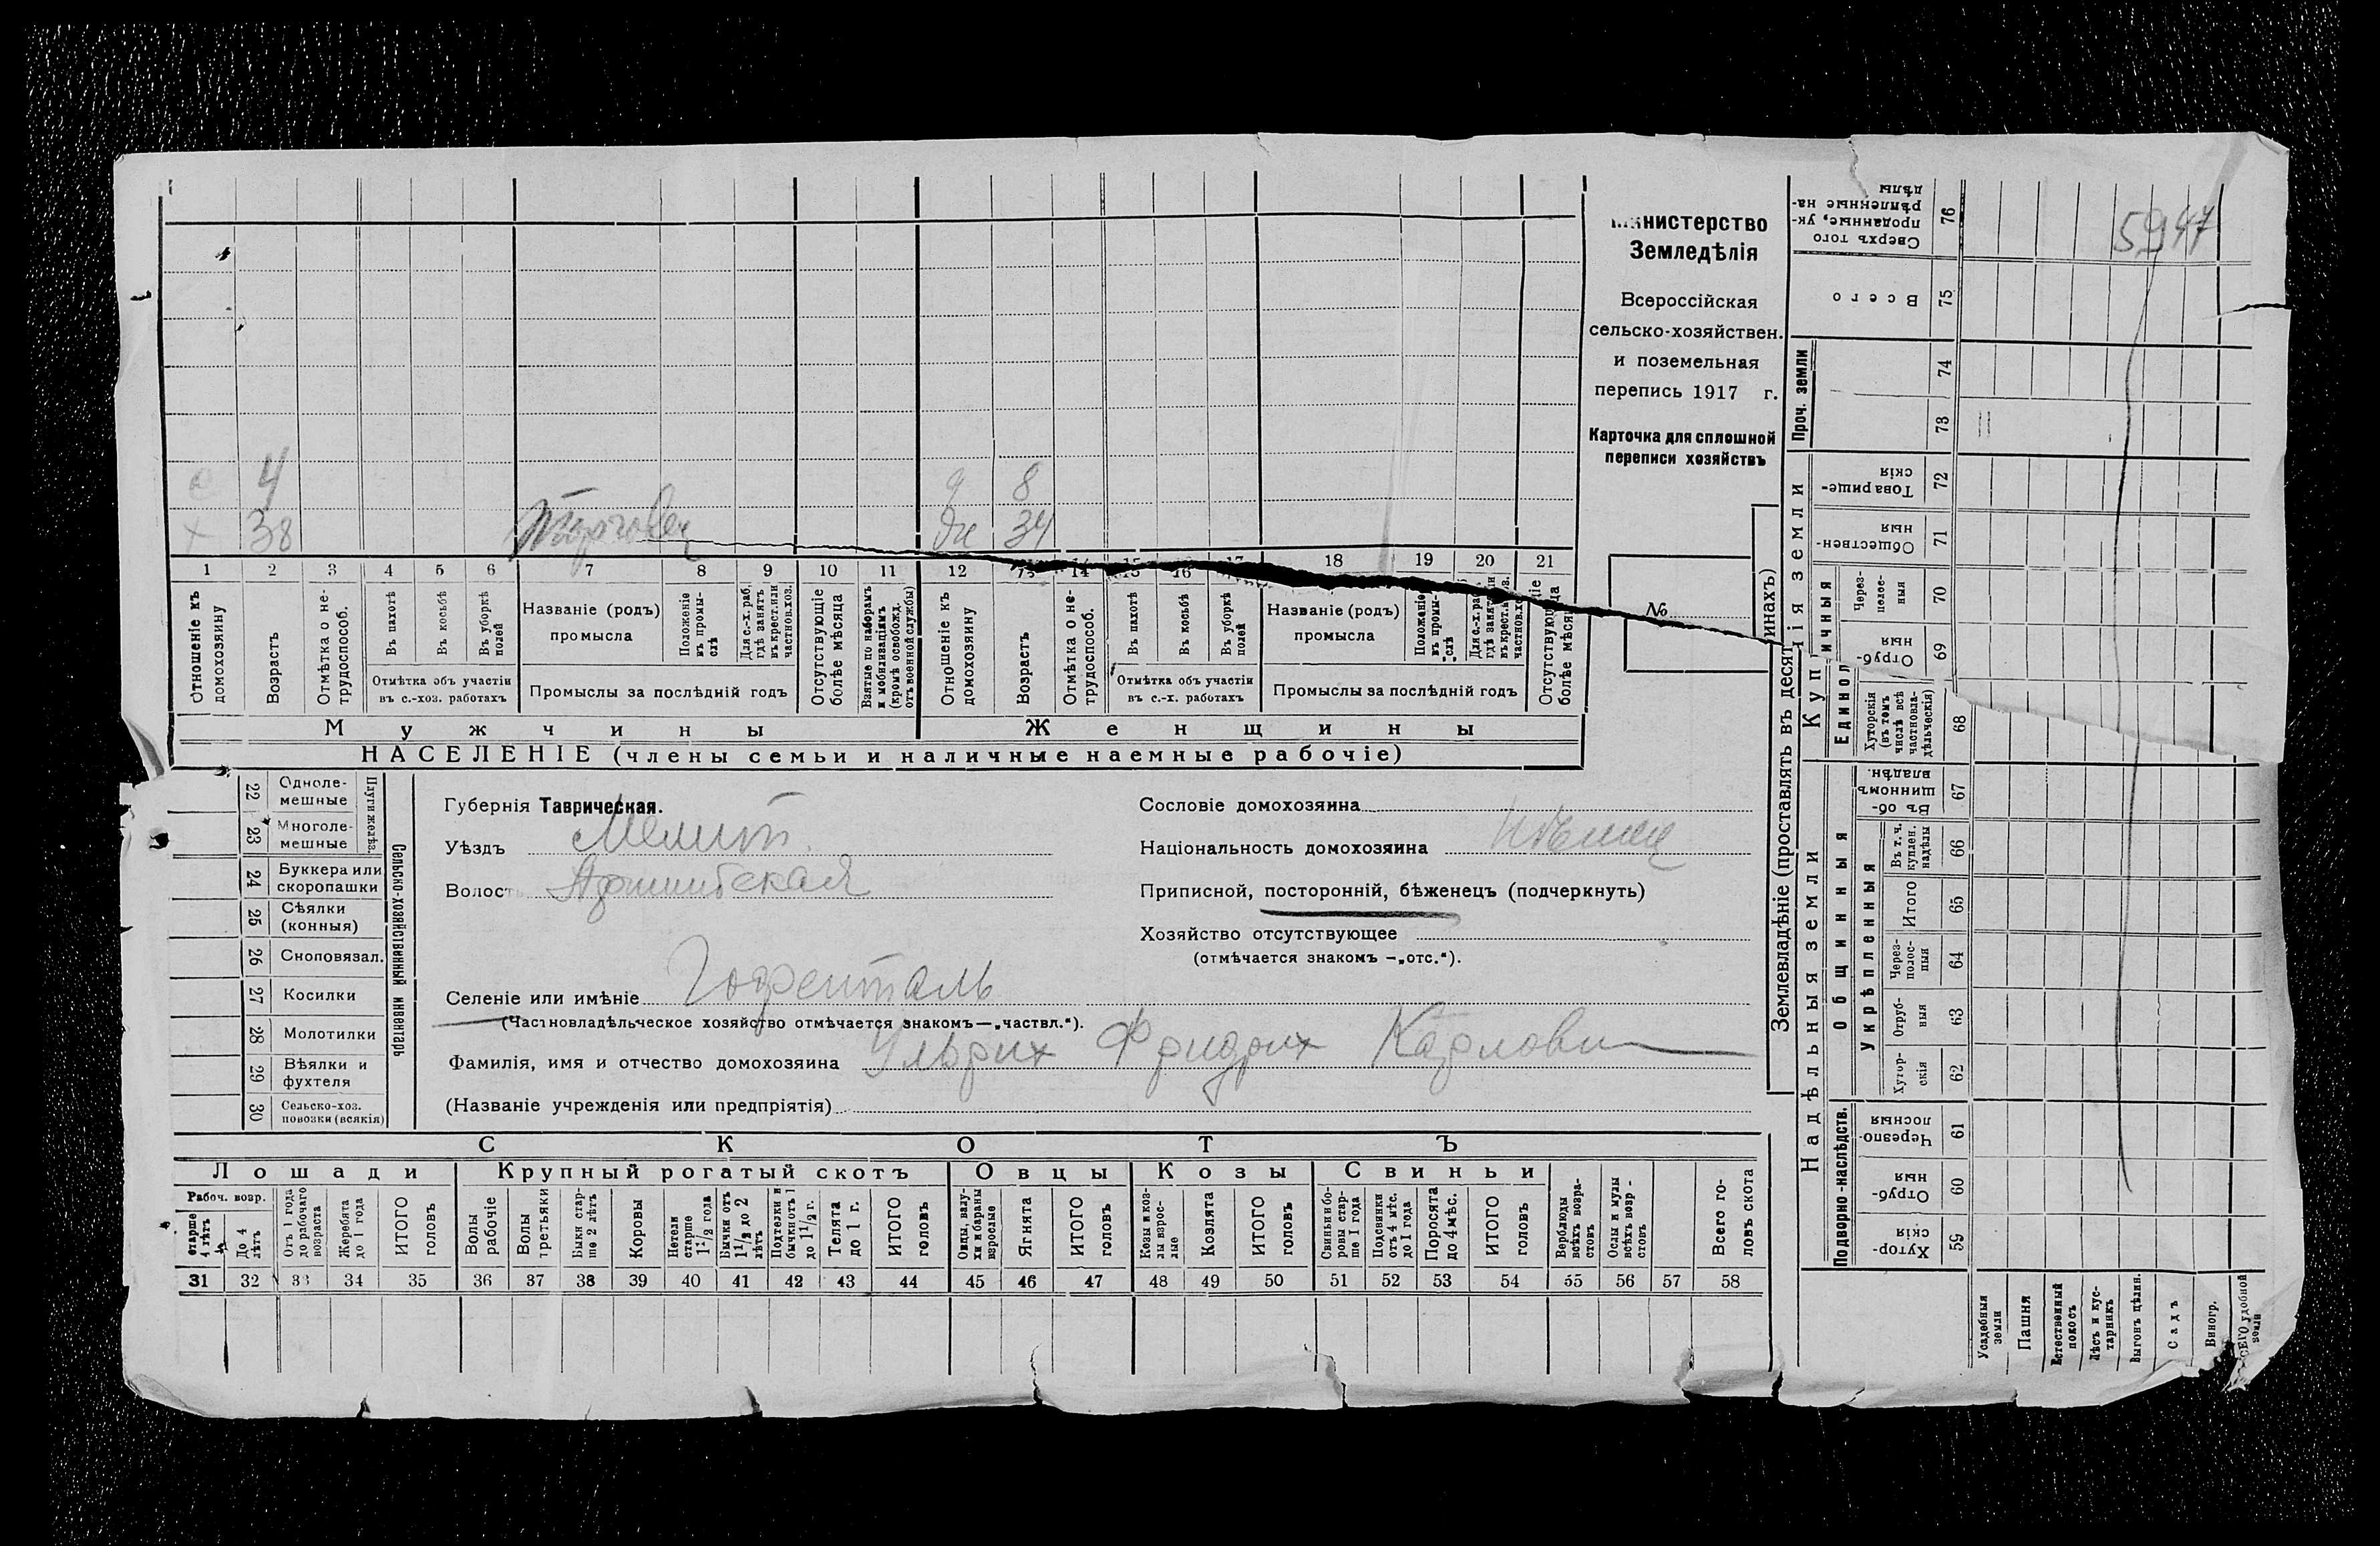 Министерство
Земледѣлія
Всероссійская
сельско-хозяйствен.
и поземельная
перепись 1917 г.
Карточка для сплошной
переписи хозяйствъ
№
4 д 8
х 38 Торговец жена 34
1 2 3 4 5 6 7 8 9 10 11 12 13 14 15 16 17 18 19 20 21
Отношеніе къ домохозяину
Возрастъ
Отмѣтка о не-трудоспособ.
Въ пахотѣ
Въ косьбѣ
Въ уборкѣ полей
Отмѣтка объ участіи
въ с.-хоз. работахъ
Названіе (родъ)
промысла
Положеніе въ промы-слѣ
Для с.-х. раб. гдѣ занятъ въ крест. или частнов. хоз.
Промыслы за послѣдній годъ
Отсутствующіе болѣе мѣсяца
Взятые по наборамъ и мобилизаціямъ (кромѣ освобожд. отъ военной службы)
Отношеніе къ домохозяину
Возрастъ
Отмѣтка о не-трудоспособ.
Въ пахотѣ
Въ косьбѣ
Въ уборкѣ полей
Отмѣтка объ участіи
въ с.-х. работахъ
Названіе (родъ)
промысла
Положеніе въ промы-слѣ
Для с.-х. раб. гдѣ занят въ крест. частнов. хоз.
Промыслы за послѣдній годъ
Отсутствующіе болѣе мѣсяца
Мужчины Женщины
НАСЕЛЕНІЕ (члены семьи и наличные наемные рабочіе)
Сельско-хозяйственный инвентарь
Плуги желѣз.
22 Одноле-мешные
23 Многоле-мешные
24 Буккера или скоропашки
25 Сѣялки (конныя)
26 Сноповязал.
27 Косилки
28 Молотилки
29 Вѣялки и фухтеля
30 Сельско-хоз. повозки (всякія)
Губернія Таврическая.
Уѣздъ Мелит.
Волость
Сословіе домохозяина
Національность домохозяина нѣмец
Приписной, посторонній, бѣженецъ (подчеркнуть)
Хозяйство отсутствующее
(отмѣчается знакомъ —„отс.“).
Селеніе или имѣніе Гофенталь
(Частновладѣльческое хозяйство отмѣчается знакомъ—„частвл.“).
Фамилія, имя и отчество домохозяина Ульрих Фридрих Карлович
(Названіе учрежденія или предпріятія)
СКОТЪ
Лошади Крупный рогатый скотъ Овцы Козы Свиньи
Рабоч. возр.
старше 4 лѣтъ
До 4 лѣтъ
Отъ 1 года до рабочаго возраста
Жеребята до 1 года
ИТОГО головъ
Волы рабочіе
Волы третьяки
Быки стар-ше 2 лѣтъ
Коровы
Нетели старше 1½ года
Бычки отъ 1½ до 2 лѣтъ
Подтелки и бычки отъ 1 до 1½ г.
Телята до 1 г.
ИТОГО головъ
Овцы, валу-хи и бараны взрослые
Ягнята
ИТОГО головъ
Козы и коз-лы взрос-лые
Козлята
ИТОГО головъ
Свиньи и бо-ровы стар-ше 1 года
Подсвинки отъ 4 мѣс. до 1 года
Поросята до 4 мѣс.
ИТОГО головъ
Верблюды всѣхъ возра-стовъ
Ослы и мулы всѣхъ возр-стовъ
Всего го-ловъ скота
31 32 33 34 35 36 37 38 39 40 41 42 43 44 45 46 47 48 49 50 51 52 53 54 55 56 57 58
Землевладѣніе (проставлять въ десятинахъ)
5947
Сверхъ того проданные, ук-рѣпленные на-дѣлы 76
Всего 75
Проч. земли
74
73
Товарище-скія 72
Обществен-ныя 71
Через-полос-ныя 70
Отруб-ныя 69
Хуторскія (въ томъ числѣ всѣ частновла-дѣльческія) 68
Въ об-щинномъ владѣн. 67
Въ т. ч. куплен. надѣлы 66
Итого 65
Через-полос-ныя 64
Отруб-ныя 63
Хутор-скія 62
Укрѣпленныя
Общинныя
Надѣльныя земли
Подворно-наслѣдств.
Черезпо-лосныя 61
Отруб-ныя 60
Хутор-скія 59
Усадебныя земли
Пашня
Естественный покосъ
Лѣсъ и кус-тарникъ
Выгонъ цѣлин.
Садъ
Виногр.
удобной земли